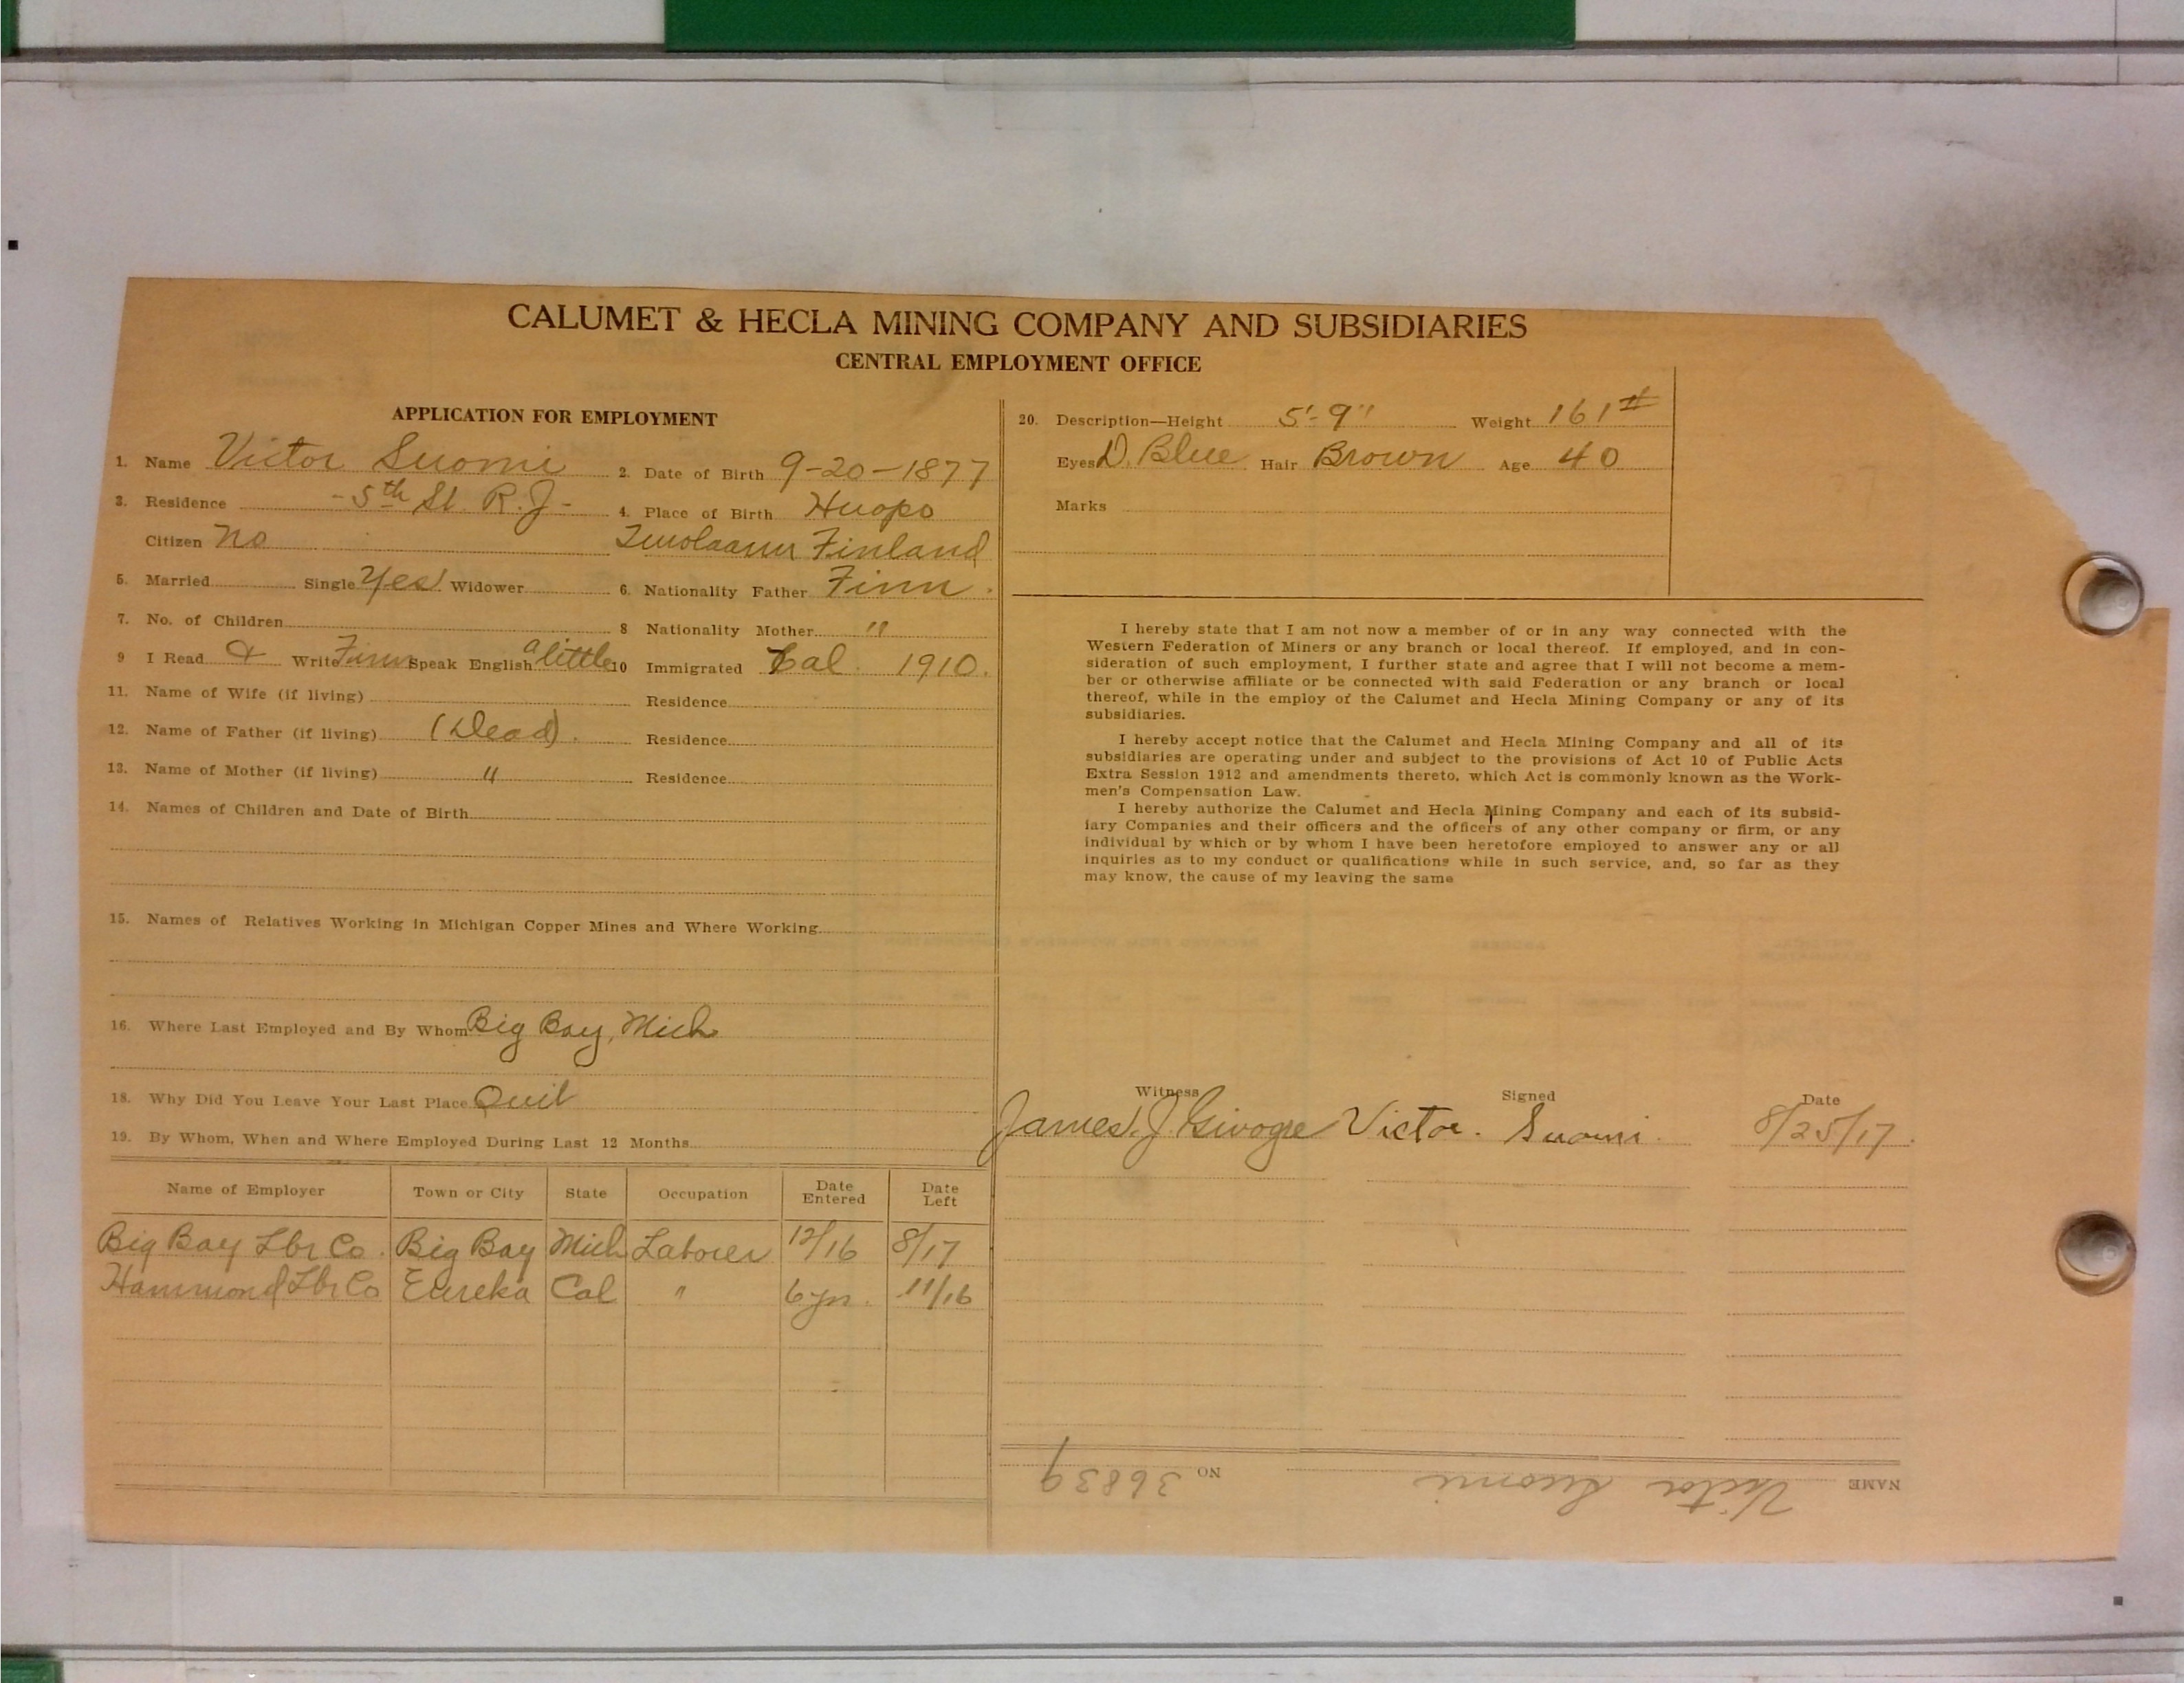 CALUMET & HECLA MINING COMPANY AND SUBSIDIARIES
CENTRAL EMPLOYMENT OFFICE
APPLICATION FOR EMPLOYMENT
1. Name Victor Suomi 2. Date of Birth 9-20-1877
3. Residence -5th St. R.J- 4. Place of Birth Huopo
Citizen no Finland
5. Married Single Yes Widower 6. Nationality Father Finn.
7. No. of Children 8 Nationality Mother "
9 I Read & Write Finn Speak English a little 10 Immigrated Cal. 1910.
11. Name of Wife (if living) Residence
12. Name of Father (if living) (Dead). Residence
13. Name of Mother (if living) " Residence
14. Names of Children and Date of Birth
15. Names of Relatives Working in Michigan Copper Mines and Where Working
16. Where Last Employed and By Whom Big Bay, Mich
18. Why Did You Leave Your Last Place Quit
19. By Whom, When and Where Employed During Last 12 Months
Name of Employer Town or City State Occupation Date Entered Date Left
Big Bay Lbr Co. Big Bay Mich Laborer 12/16 8/17
Hammond Lbr Co Eureka Cal " 6 yr. 11/16
20. Description—Height 5'-9" Weight 161#
Eyes D. Blue Hair Brown Age 40
Marks
I hereby state that I am not now a member of or in any way connected with the
Western Federation of Miners or any branch or local thereof. If employed, and in con-
sideration of such employment, I further state and agree that I will not become a mem-
ber or otherwise affiliate or be connected with said Federation or any branch or local
thereof, while in the employ of the Calumet and Hecla Mining Company or any of its
subsidiaries.
I hereby accept notice that the Calumet and Hecla Mining Company and all of its
subsidiaries are operating under and subject to the provisions of Act 10 of Public Acts
Extra Session 1912 and amendments thereto, which Act is commonly known as the Work-
men's Compensation Law.
I hereby authorize the Calumet and Hecla Mining Company and each of its subsid-
iary Companies and their officers and the officers of any other company or firm, or any
individual by which or by whom I have been heretofore employed to answer any or all
inquiries as to my conduct or qualifications while in such service, and, so far as they
may know, the cause of my leaving the same
Witness Signed Date
James J. Victor. Suomi. 8/25/17.
NAME Victor Suomi NO 36839